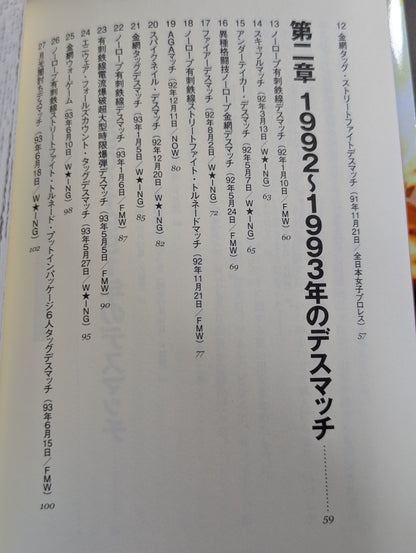 12 金網タッグ・ストリートファイトデスマッチ（91年11月21日／全日本女子プロレス） 57
第二章 1992〜1993年のデスマッチ …………… 59
13 ノーロープ有刺鉄線デスマッチ（92年1月10日／FMW） 60
14 スキャフルマッチ（92年3月13日／W★ING） 63
15 アンダーテイカー・デスマッチ（92年6月7日／W★ING） 65
16 異種格闘技ノーロープ金網デスマッチ（92年5月24日／FMW） 69
17 ファイアーデスマッチ（92年8月2日／W★ING） 72
18 ノーロープ有刺鉄線ストリートファイト・トルネードマッチ（92年11月21日／FMW） 77
19 AGAマッチ（92年12月11日／NOW） 80
20 スパイクネイル・デスマッチ（92年12月20日／W★ING） 82
21 金網タッグデスマッチ（93年1月5日／W★ING） 85
22 ノーロープ有刺鉄線デスマッチ（93年1月6日／FMW） 87
23 有刺鉄線電流爆破超大型時限爆弾デスマッチ（93年5月5日／FMW） 90
24 エニウェア・フォールズカウント・タッグデスマッチ（93年5月27日／W★ING） 95
25 金網ウォーゲーム（93年6月10日／W★ING） 98
26 ノーロープ有刺鉄線ストリートファイト・トルネード・プットインパッケージ6人タッグデスマッチ（93年6月15日／FMW） 100
27 月光闇討ちデスマッチ（93年6月18日／W★ING） 102